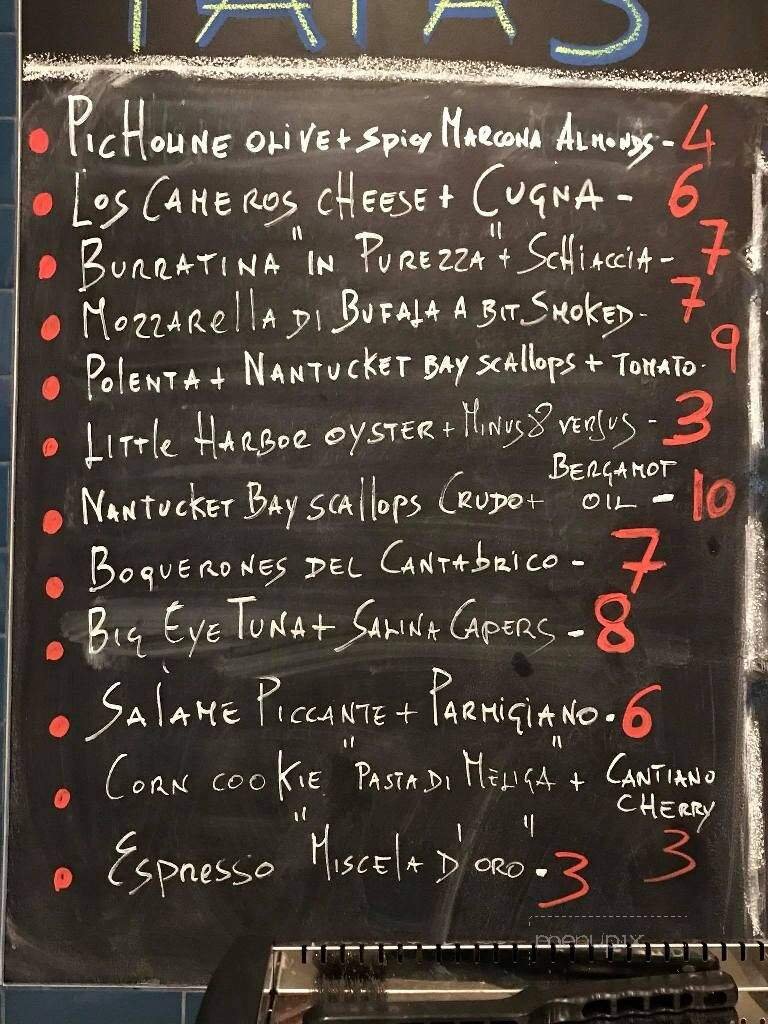 TAPAS
PICHOLINE OLIVE + SPICY MARCONA ALMONDS - 4
LOS CAMEROS CHEESE + CUGNA - 6
BURRATINA "IN PUREZZA" + SCHIACCIA - 7
MOZZARELLA DI BUFALA A BIT SMOKED - 7
POLENTA + NANTUCKET BAY SCALLOPS + TOMATO - 9
LITTLE HARBOR OYSTER + MINUS 8 VERSUS - 3
NANTUCKET BAY SCALLOPS CRUDO + BERGAMOT OIL - 10
BOQUERONES DEL CANTABRICO - 7
BIG EYE TUNA + SALINA CAPERS - 8
SALAME PICCANTE + PARMIGIANO - 6
CORN COOKIE "PASTA DI MELIGA" + CANTIANO CHERRY 3
ESPRESSO "MISCELA D'ORO" - 3
menupix